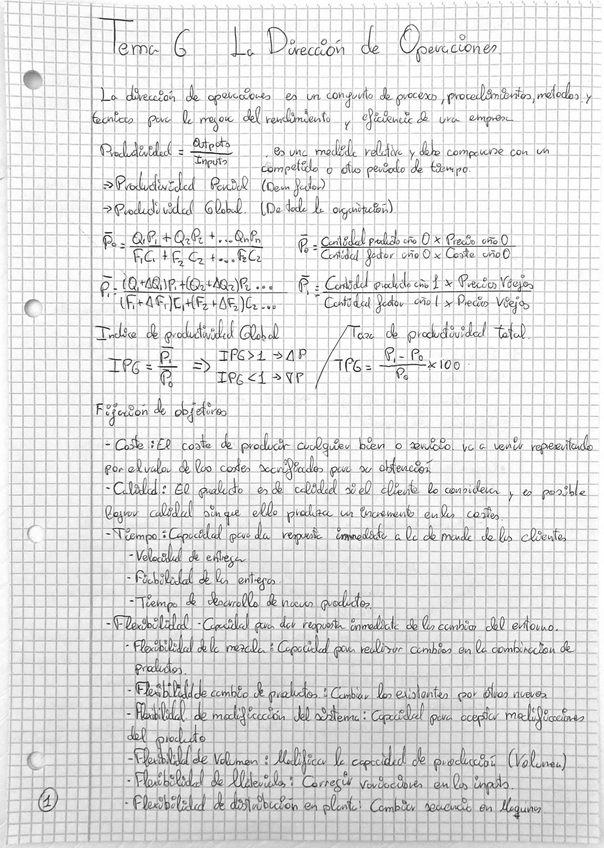 Tema 6 La Dirección de Operaciones.
La dirección de operaciones es un conjunto de procesos, procedimientos, metodos y
tecnicas para la mejora del rendimiento y eficiencia de una empresa
Productividad = Outputs / Inputs es una medida relativa y debe compararse con un
competido u otro periodo de tiempo.
⇒ Productividad Parcial (De un factor)
⇒ Productividad Global. (De toda la organización)
P̄₀ = Q₁P₁ + Q₂P₂ + ... QnPn / F₁C₁ + F₂C₂ + ... F₂C₂ P̄₀ = Cantidad producto año 0 x Precio año 0 / Cantidad factor año 0 x Coste año 0
P̄₁ = (Q₁+ΔQ₁)P₁+(Q₂+ΔQ₂)P₂ ... / (F₁+ΔF₁)C₁+(F₂+ΔF₂)C₂ ... P̄₁ = Cantidad producto año 1 x Precios Viejos / Cantidad factor año 1 x Precios Viejos
Indice de productividad Global / Tasa de productividad total.
IPG = P̄₁ / P̄₀ ⇒ IPG>1 → ΔP TPG = P₁ - P₀ / P₀ x100
IPG<1 → ∇P
Fijación de objetivos
- Coste: El coste de producir cualquier bien o servicio va a venir representado
por el valor de los costes sacrificados para su obtención
- Calidad: El producto es de calidad si el cliente lo considera y es posible
lograr calidad sin que ello produzca un incremento en los costes.
- Tiempo: Capacidad para da respuesta inmediata a la demanda de los clientes
- Velocidad de entrega
- Fiabilidad de las entregas
- Tiempo de desarrollo de nuevos productos.
- Flexibilidad - Capacidad para dar respuesta inmediata de los cambios del entorno.
- Flexibilidad de la mezcla: Capacidad para realizar cambios en la combinación de
productos.
- Flexibilidad de cambio de productos: Cambiar los existentes por otros nuevos
- Flexibilidad de modificación del sistema: Capacidad para aceptar modificaciones
del producto
- Flexibilidad de Volumen: Modificar la capacidad de producción (Volumen)
- Flexibilidad de Materiales: Corregir variaciones en los inputs.
- Flexibilidad de distribución en planta: Cambiar secuencia en Maquinas
1